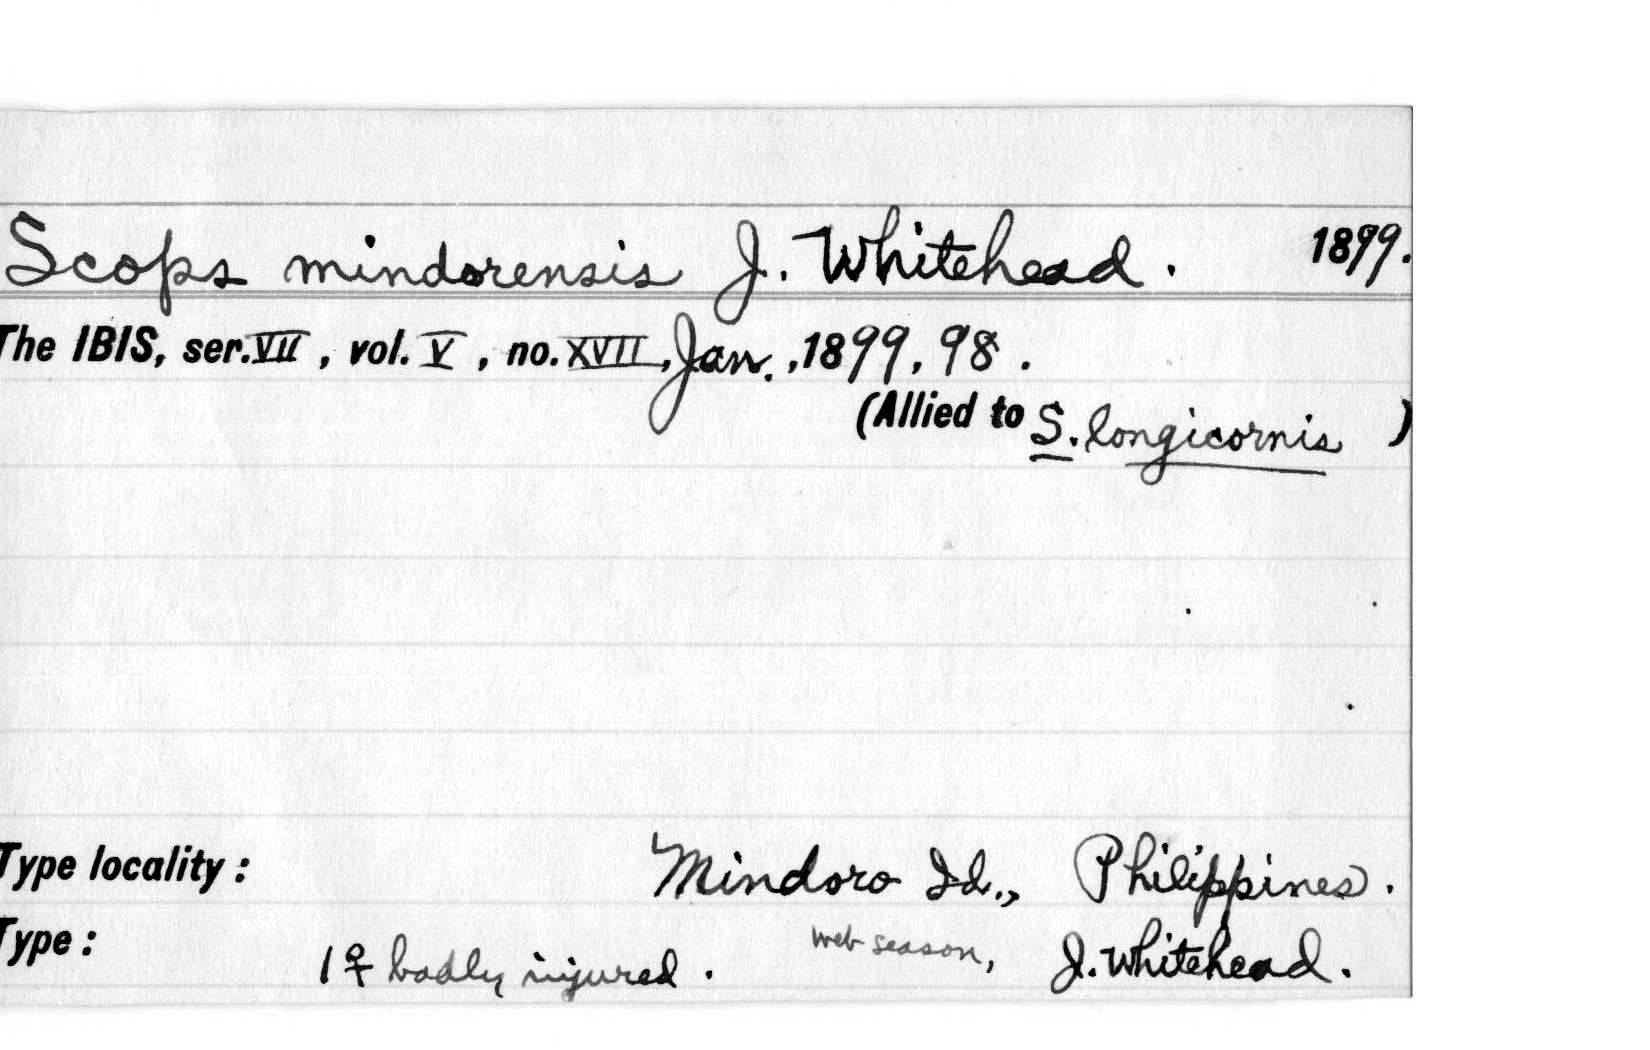 Scops mindorensis J. Whitehead. 1899.
The IBIS, ser. VII, vol. V, no. XVII, Jan., 1899, 98.
(Allied to S. longicornis )
Type locality: Mindoro Id., Philippines.
Type: 1♀ badly injured. wet season, J. Whitehead.